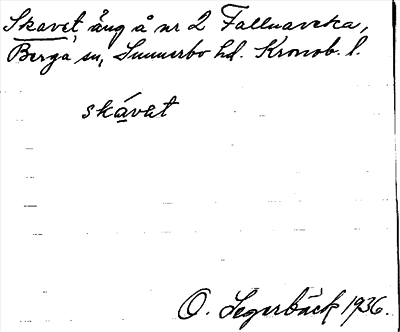 Skavet, äng å nr 2 Fallnaveka,
Berga sn, Sunnerbo hd. Kronob. l.
skávat
O. Segerbäck 1936.